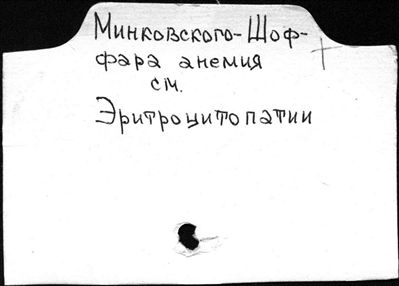 Минковского-Шоф-
фара анемия
см.
Эритроцитопатии